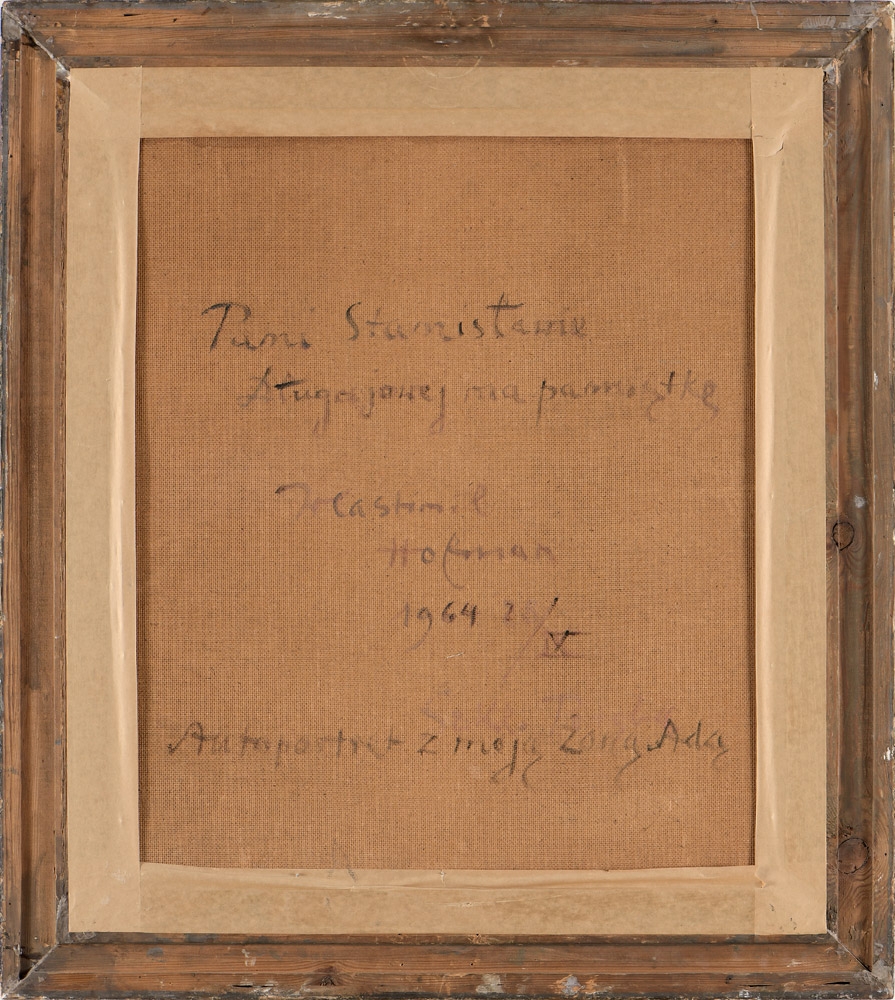 Pani Stanisławie
Długajowej na pamiątkę
Wlastimil
Hofman
1964 /IX
Autoportret z moją żoną Adą